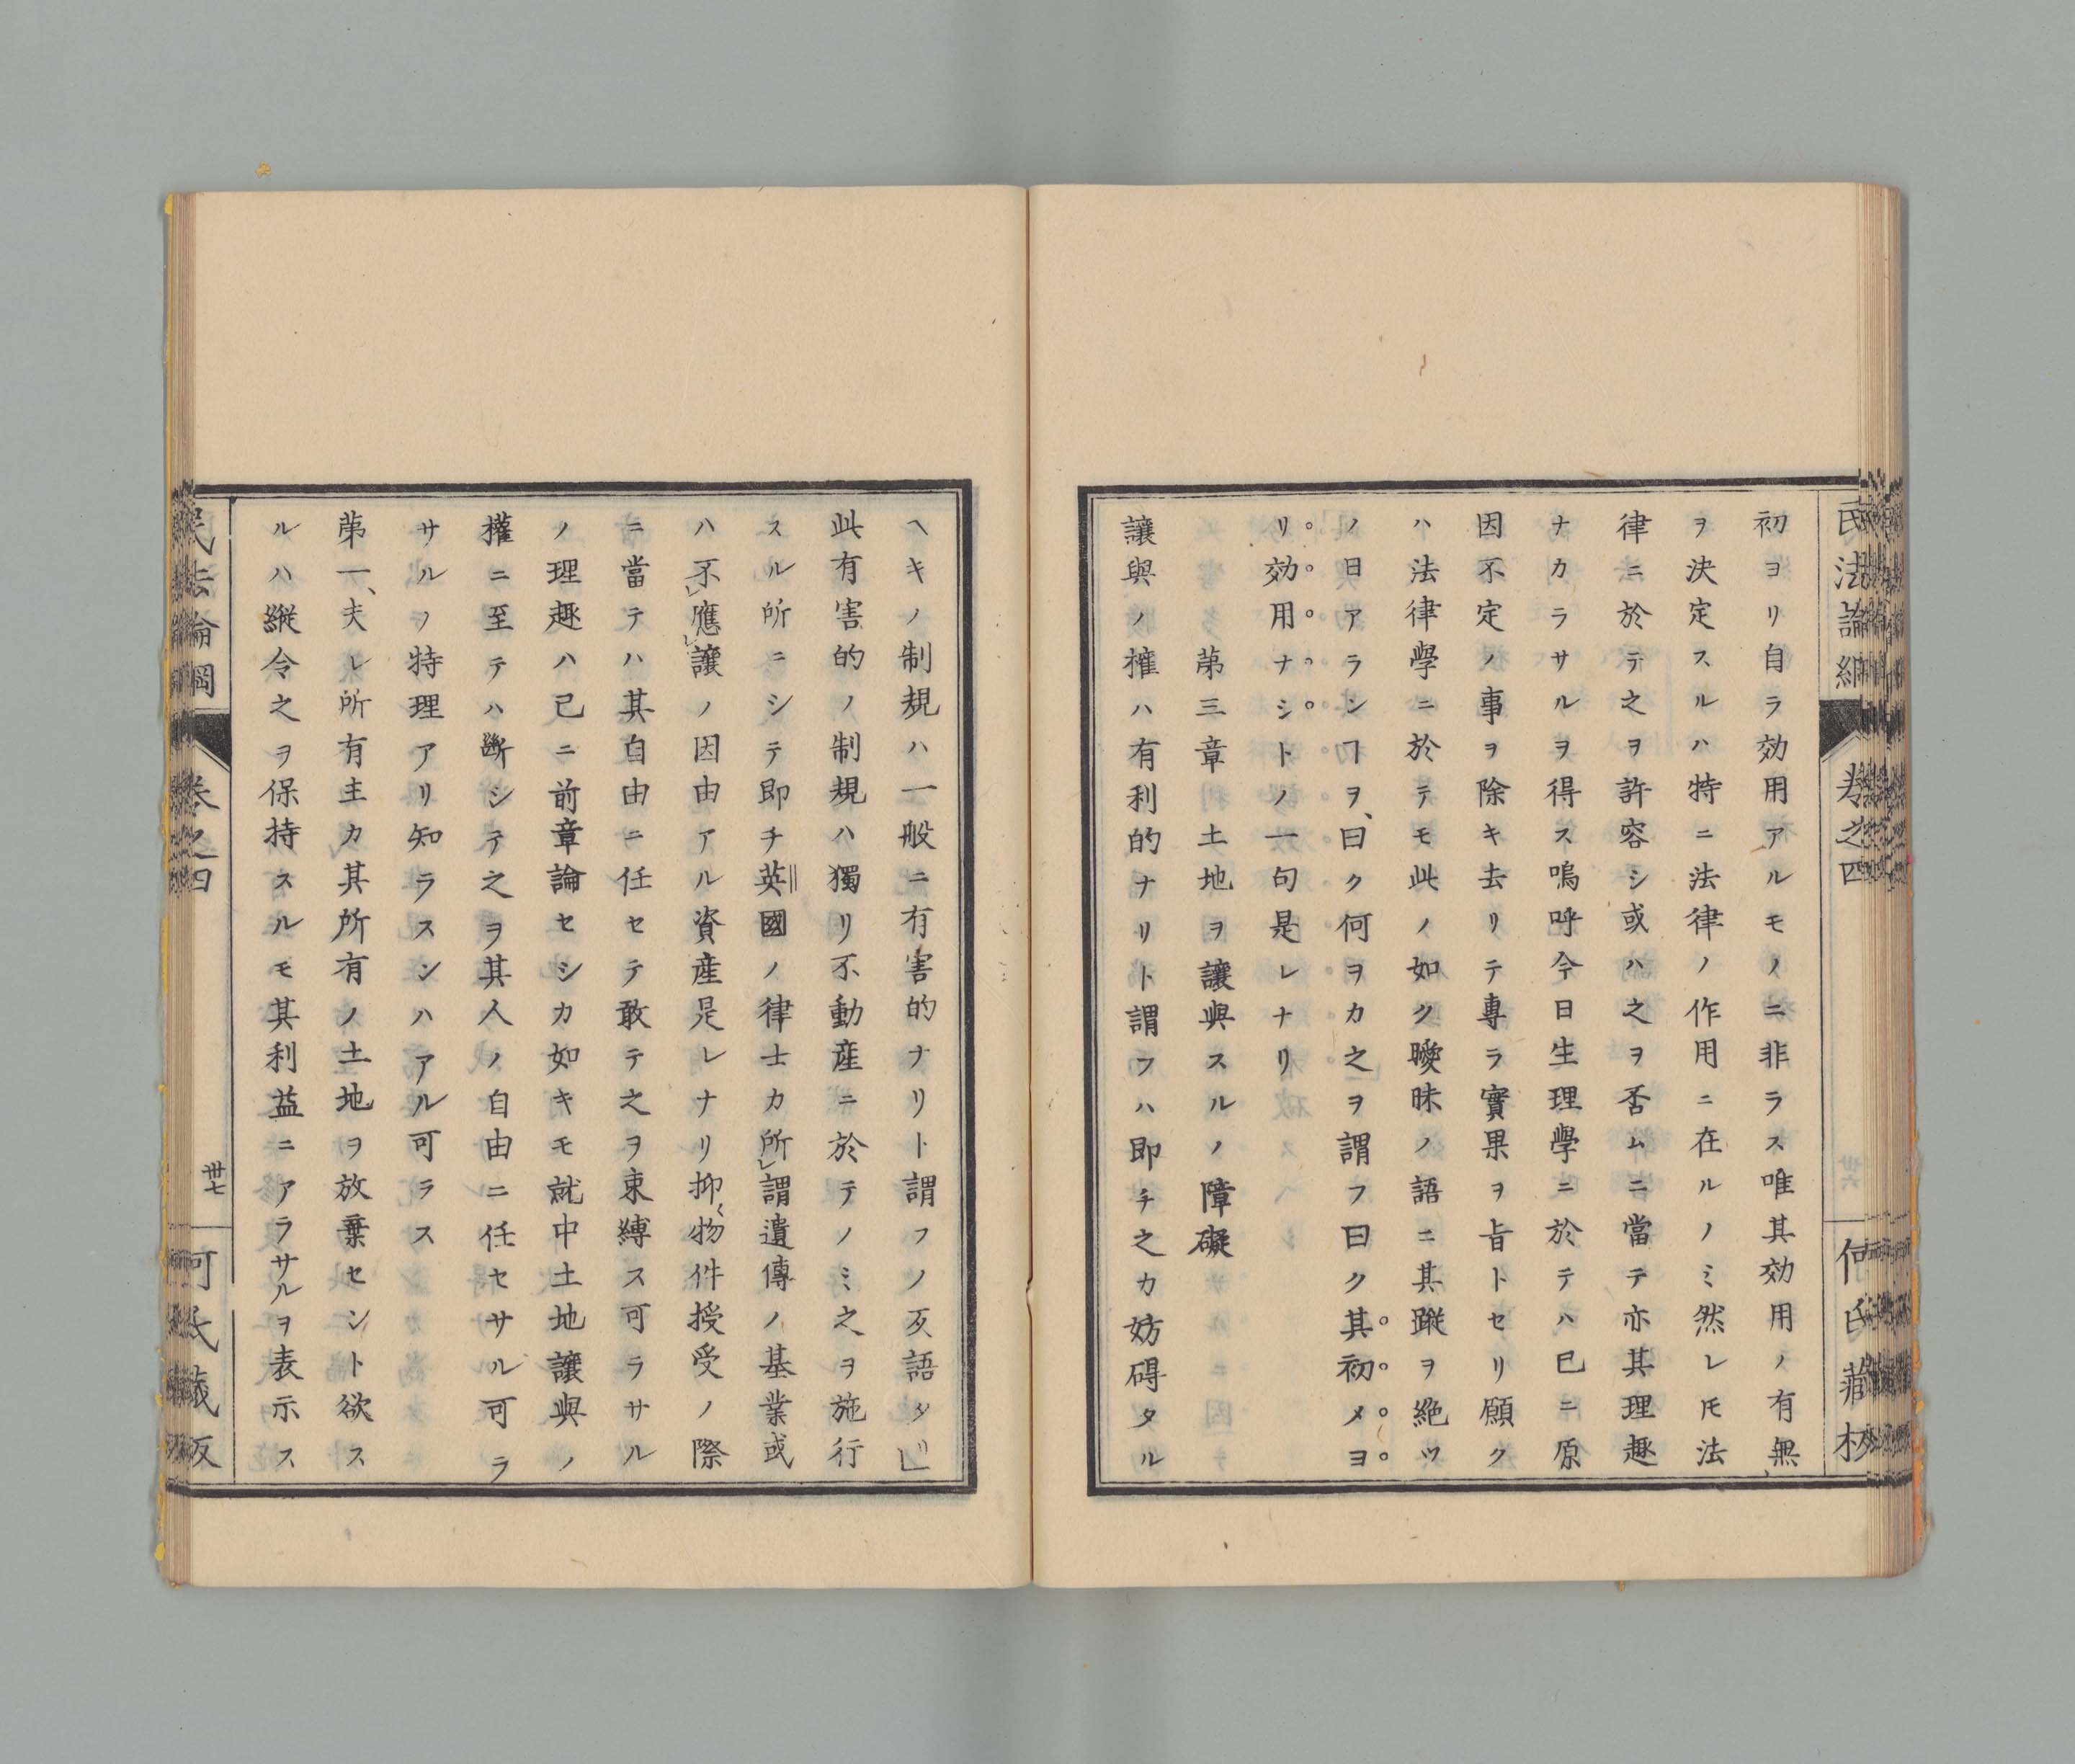 民法論綱
卷之四
何氏藏板
初ヨリ自ラ効用アルモノニ非ラス唯其効用ノ有無、
ヲ決定スルハ特ニ法律ノ作用ニ在ルノミ然レ𪜈法
律ニ於テ之ヲ許容シ或ハ之ヲ否ムニ當テ亦其理趣
ナカラサルヲ得ス嗚呼今日生理學ニ於テハ已ニ原
因不定ノ事ヲ除キ去リテ專ラ實果ヲ旨トセリ願ク
ハ法律學ニ於テモ此ノ如ク曖昧ノ語ニ其蹤ヲ絶ツ
ノ日アランヿヲ、曰ク何ヲカ之ヲ謂フ曰ク其初メヨ
リ効用ナシトノ一句是レナリ
苐三章土地ヲ讓與スルノ障礙
讓與ノ權ハ有利的ナリト謂フハ即チ之カ妨碍タル
ヘキノ制規ハ一般ニ有害的ナリト謂フノ反語タリ」
此有害的ノ制規ハ獨リ不動産ニ於テノミ之ヲ施行
スル所ニシテ即チ英國ノ律士カ所レ謂遺傳ノ基業或
ハ不レ應レ讓ノ因由アル資産是レナリ抑〻物件授受ノ際
ニ當テハ其自由ニ任セテ敢テ之ヲ束縛ス可ラサル
ノ理趣ハ已ニ前章論セシカ如キモ就中土地讓與ノ
權ニ至テハ斷シテ之ヲ其人ノ自由ニ任セサル可ラ
サルノ特理アリ知ラスンハアル可ラス
苐一、夫レ所有主カ其所有ノ土地ヲ放棄セント欲ス
ルハ縱令之ヲ保持スルモ其利益ニアラサルヲ表示ス
民法論綱
卷之四
卅七
何氏藏板